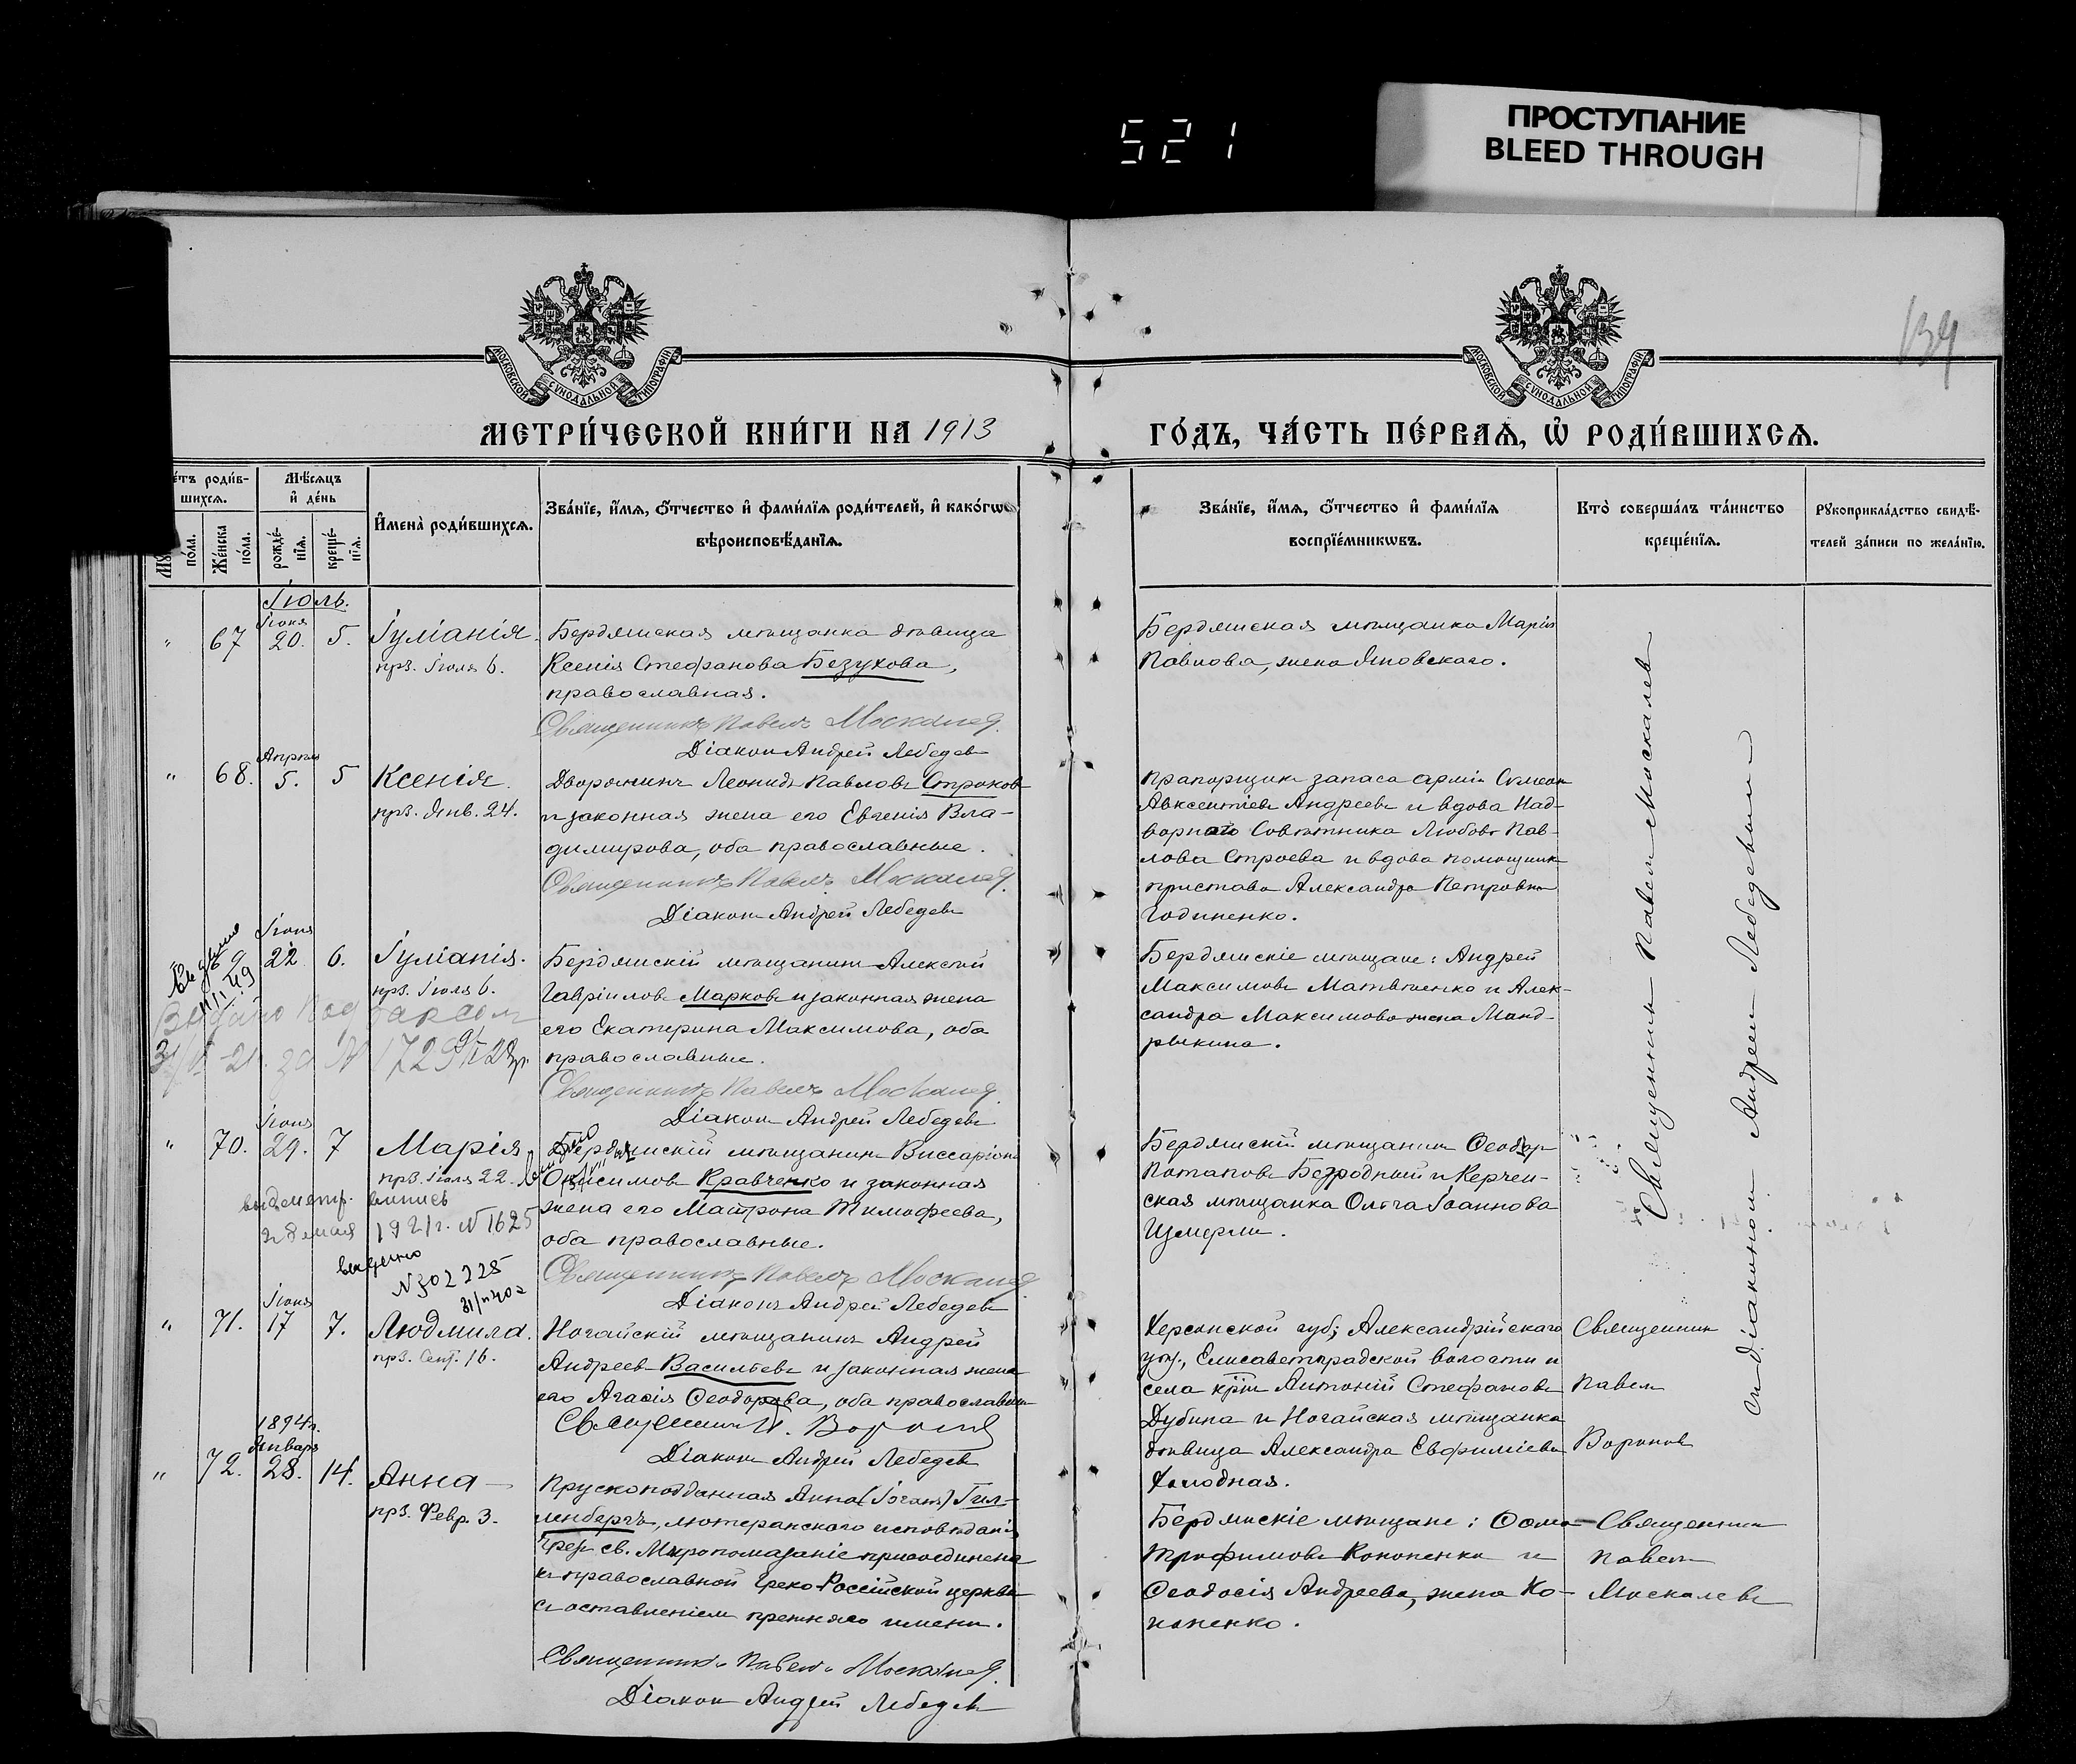 521
ПРОСТУПАНИЕ
BLEED THROUGH
139
МОСКОВСКОЙ СѴНОДАЛЬНОЙ ТИПОГРАФІИ
МОСКОВСКОЙ СѴНОДАЛЬНОЙ ТИПОГРАФІИ
МЕТРИ́ЧЕСКОЙ КНИ́ГИ НА 1913
ГО́ДЪ, ЧА́СТЬ ПЕ́РВАѦ, Ѽ РОДИ́ВШИХСѦ.
етъ роди́в-
шихсѧ.
пола.
Же́нска по́ла.
Мѣ́сѧцъ и҆ де́нь
рожде́-нїѧ.
креще́-нїѧ.
И҆мена̀ роди́вшихсѧ.
Зва́нїе, и҆́мѧ, ѻ҆́тчество и҆ фами́лїѧ роди́телей, и҆ како́гѡ
вѣроисповѣ́данїѧ.
Зва́нїе, и҆́мѧ, ѻ҆́тчество и҆ фами́лїѧ
воспрїе́мникѡвъ.
Кто̀ соверша́лъ та́инство
креще́нїѧ.
Рꙋкоприкла́дство свидѣ́-
телей за́писи по жела́нїю.
Іюль.
" 67 Іюня 20. 5. Іуліанія.
прз. Іюля 6.
Бердянская мѣщанка дѣвица
Ксенія Стефанова Безухова,
православная.
Священникъ Павелъ Москалев
Діаконъ Андрей Лебедевъ
Бердянская мѣщанка Марія
Павлова, жена Яновскаго.
" 68. Апрѣля 5. 5 Ксенія.
прз. Янв. 24.
Дворянинъ Леонидъ Павловъ Строковъ
и законная жена его Евгенія Вла-
димірова, оба православные.
Священникъ Павелъ Москалев
Діаконъ Андрей Лебедевъ
Прапорщикъ запаса арміи Симеон
Авксентіевъ Андреевъ и вдова Над-
ворнаго Совѣтника Любовь Пав-
лова Строева и вдова помощник
пристава Александра Петровна
Годиненко.
69 Іюня 22 6. Іуліанія.
прз. Іюля 6.
Бердянскій мѣщанинъ Алексѣй
Гавріиловъ Марковъ и законная жена
его Екатерина Максимова, оба
православные.
Священникъ Павелъ Москалев
Діаконъ Андрей Лебедевъ
Бердянскіе мѣщане: Андрей
Максимовъ Матвѣенко и Алек-
сандра Максимова жена Манд-
рыкина.
" 70. Іюня 29. 7 Марія
прз. Іюля 22.
Бердянскій мѣщанинъ Виссаріонъ
Онисимовъ Кравченко и законная
жена его Матрона Тимофеева,
оба православные.
Священникъ Павелъ Москалев
Діаконъ Андрей Лебедевъ
Бердянскій мѣщанинъ Ѳеодоръ
Потаповъ Безродный и Керчен-
ская мѣщанка Ольга Іоаннова
Цмерли.
28 мая 1921г. N 1625
выдано
N302225
" 71. Іюня 17 7. Людмила.
прз. Сент. 16.
Ногайскій мѣщанинъ Андрей
Андреевъ Васильевъ и законная жена
его Агасія Ѳеодорова, оба православные
Священникъ П. Воронов
Діаконъ Андрей Лебедевъ
Херсонской губ; Александрійскаго
уѣз., Елисаветградской волости и
села крн Антоній Стефановъ
Дубина и Ногайская мѣщанка
дѣвица Александра Евфиміева
Холодная.
Священник
Павел
Воронов
" 72. 1894г. Января 28. 14. Анна
прз. Февр. 3.
Прускоподданная Анна (Іоганъ) Гил-
ленбергъ, лютеранскаго исповѣданія
чрез св. Мѵропомазаніе присоединена
къ православной Греко-Россійской церкви
съ оставленіем прежняго имени.
Священникъ Павелъ Москалев
Діаконъ Андрей Лебедевъ
Бердянскіе мѣщане: Ѳома
Трофимовъ Кононенко и
Ѳеодосія Андреева, жена Ко-
ноненко.
Священник
Павел
Москалевъ
Священникъ Павелъ Москалевъ
съ діакономъ Андреем Лебедевымъ